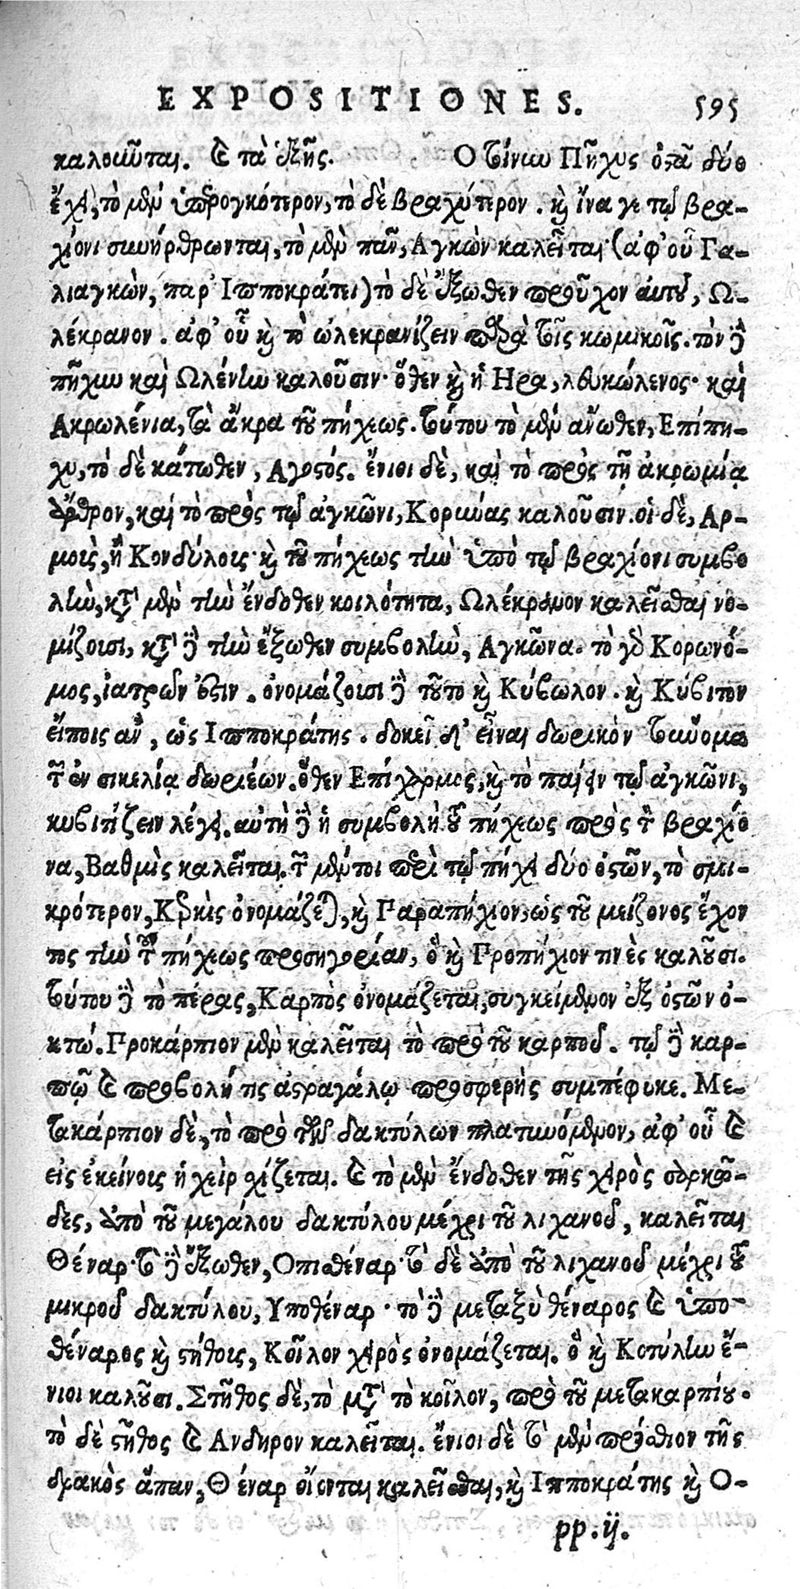 EXPOSITIONES. 595
καλοῦνται. καὶ τὰ ἑξῆς. Ο τοίνυν Πῆχυς ὀστᾶ δύο
ἔχει, τὸ μὲν ὑπερογκότερον, τὸ δὲ βραχύτερον. καὶ ἵνα γε τῷ βρα-
χίονι συνήρθρωνται, τὸ μὲν πᾶν, Αγκὼν καλεῖται (ἀφ' οὗ Γα-
λιαγκὼν, παρ' Ιπποκράτει) τὸ δὲ ἔξωθεν προῦχον αὐτοῦ, Ω-
λέκρανον. ἀφ' οὗ καὶ τὸ ὠλεκρανίζειν παρὰ τοῖς κωμικοῖς. τὸν δὲ
πῆχυν καὶ Ωλένην καλοῦσιν· ὅθεν καὶ ἡ Ηρα, λευκώλενος· καὶ
Ακρωλένια, τὰ ἄκρα τοῦ πήχεως. τούτου τὸ μὲν ἄνωθεν, Επίπη-
χυ, τὸ δὲ κάτωθεν, Αγοστός. ἔνιοι δὲ, καὶ τὸ πρὸς τῇ ἀκρωμίᾳ
ἄρθρον, καὶ τὸ πρὸς τῷ ἀγκῶνι, Κορώνας καλοῦσιν. οἱ δὲ, Αρ-
μοὺς, ἢ Κονδύλους· καὶ τοῦ πήχεως τὴν ὑπὸ τῷ βραχίονι συμβο
λὴν, κατὰ μὲν τὴν ἔνδοθεν κοιλότητα, Ωλέκρανον καλεῖσθαι νο-
μίζουσι, κατὰ δὲ τὴν ἔξωθεν συμβολὴν, Αγκῶνα. τὸ γὰρ Κορωνό-
μος, ἰατρῶν ἐστιν. ὀνομάζουσι δὲ τοῦτο καὶ Κύβωλον. καὶ Κύβιτον
εἴποις ἂν, ὡς Ιπποκράτης. δοκεῖ δ' εἶναι δωρικὸν τοὔνομα
τῶν ἐν σικελίᾳ δωριέων. ὅθεν Επίχαρμος, καὶ τὸ παίειν τῷ ἀγκῶνι,
κυβιτίζειν λέγει. αὐτὴ δὲ ἡ συμβολὴ τοῦ πήχεως πρὸς τὸν βραχίο
να, Βαθμὶς καλεῖται. τῶν μέντοι περὶ τῷ πήχει δύο ὀστῶν, τὸ σμι-
κρότερον, Κερκὶς ὀνομάζεται, καὶ Παραπήχιον, ὡς τοῦ μείζονος ἔχον
τος τὴν τοῦ πήχεως προσηγορίαν, ὃ καὶ Προπήχιον τινὲς καλοῦσι.
τούτου δὲ τὸ πέρας, Καρπὸς ὀνομάζεται, συγκείμενον ἐξ ὀστῶν ὀ-
κτώ. Προκάρπιον μὲν καλεῖται τὸ πρὸ τοῦ καρποῦ. τῷ δὲ καρ-
πῷ καὶ προβολή τις ἀστραγάλῳ προσφερὴς συμπέφυκε. Με-
τακάρπιον δὲ, τὸ πρὸ τῶν δακτύλων πλατυνόμενον, ἀφ' οὗ καὶ
εἰς ἐκείνους ἡ χεὶρ σχίζεται. καὶ τὸ μὲν ἔνδοθεν τῆς χειρὸς σαρκῶ-
δες, ἀπὸ τοῦ μεγάλου δακτύλου μέχρι τοῦ λιχανοῦ, καλεῖται
Θέναρ· τὸ δὲ ἔξωθεν, Οπισθέναρ· τὸ δὲ ἀπὸ τοῦ λιχανοῦ μέχρι τοῦ
μικροῦ δακτύλου, Υποθέναρ· τὸ δὲ μεταξὺ θέναρος καὶ ὑπο-
θέναρος καὶ στήθους, Κοῖλον χειρὸς ὀνομάζεται. ὃ καὶ Κοτύλην ἔ-
νιοι καλοῦσι. Στῆθος δὲ, τὸ μετὰ τὸ κοῖλον, πρὸ τοῦ μετακαρπίου.
τὸ δὲ στῆθος καὶ Ανδηρον καλεῖται. ἔνιοι δὲ τὸ μὲν πρόσθιον τῆς
δρακὸς ἅπαν, Θέναρ οἴονται καλεῖσθαι, καὶ Ιπποκράτης καὶ Ο-
pp.ij.